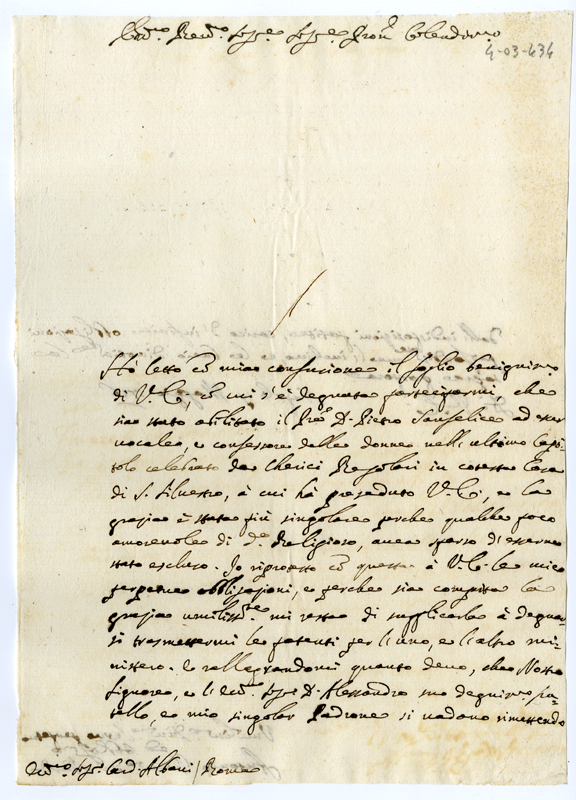 Em.mo Rev.mo Sig.re Sig.re Pron Colendis.mo
4-03-434
Hò letto cõ mia confusione il foglio benigniss.mo
di V. E., cõ cui s'è degnata parteciparmi, che
sia stato abilitato il Pre D. Pietro Sanfelice ad esser
vocale, e confessore delle donne nell'ultimo Capi-
tolo celebrato da Cherici Regolari in cotesta Casa
di S. Silvestro, à cui hà preseduto V. E., e la
grazia è stata più singolare perche qualche poco
amorevole di d.o Religioso, avea sparso d'esserne
stato escluso. Io riprotesto cõ questa à V. E. le mie
perpetue obligazioni, e perche sia compita la
grazia umiliss.te mi resta di supplicarla à degnar-
si trasmettermi le patenti per l'uno, e l'altro mi-
nistero. E rallegrandomi quanto devo, che Nostro
Signore, e li Sig.r D. Alessandro suo degniss.mo fra-
tello, e mio singolar Padrone si vadano rimettendo
Sig.r Card. Albani / Roma